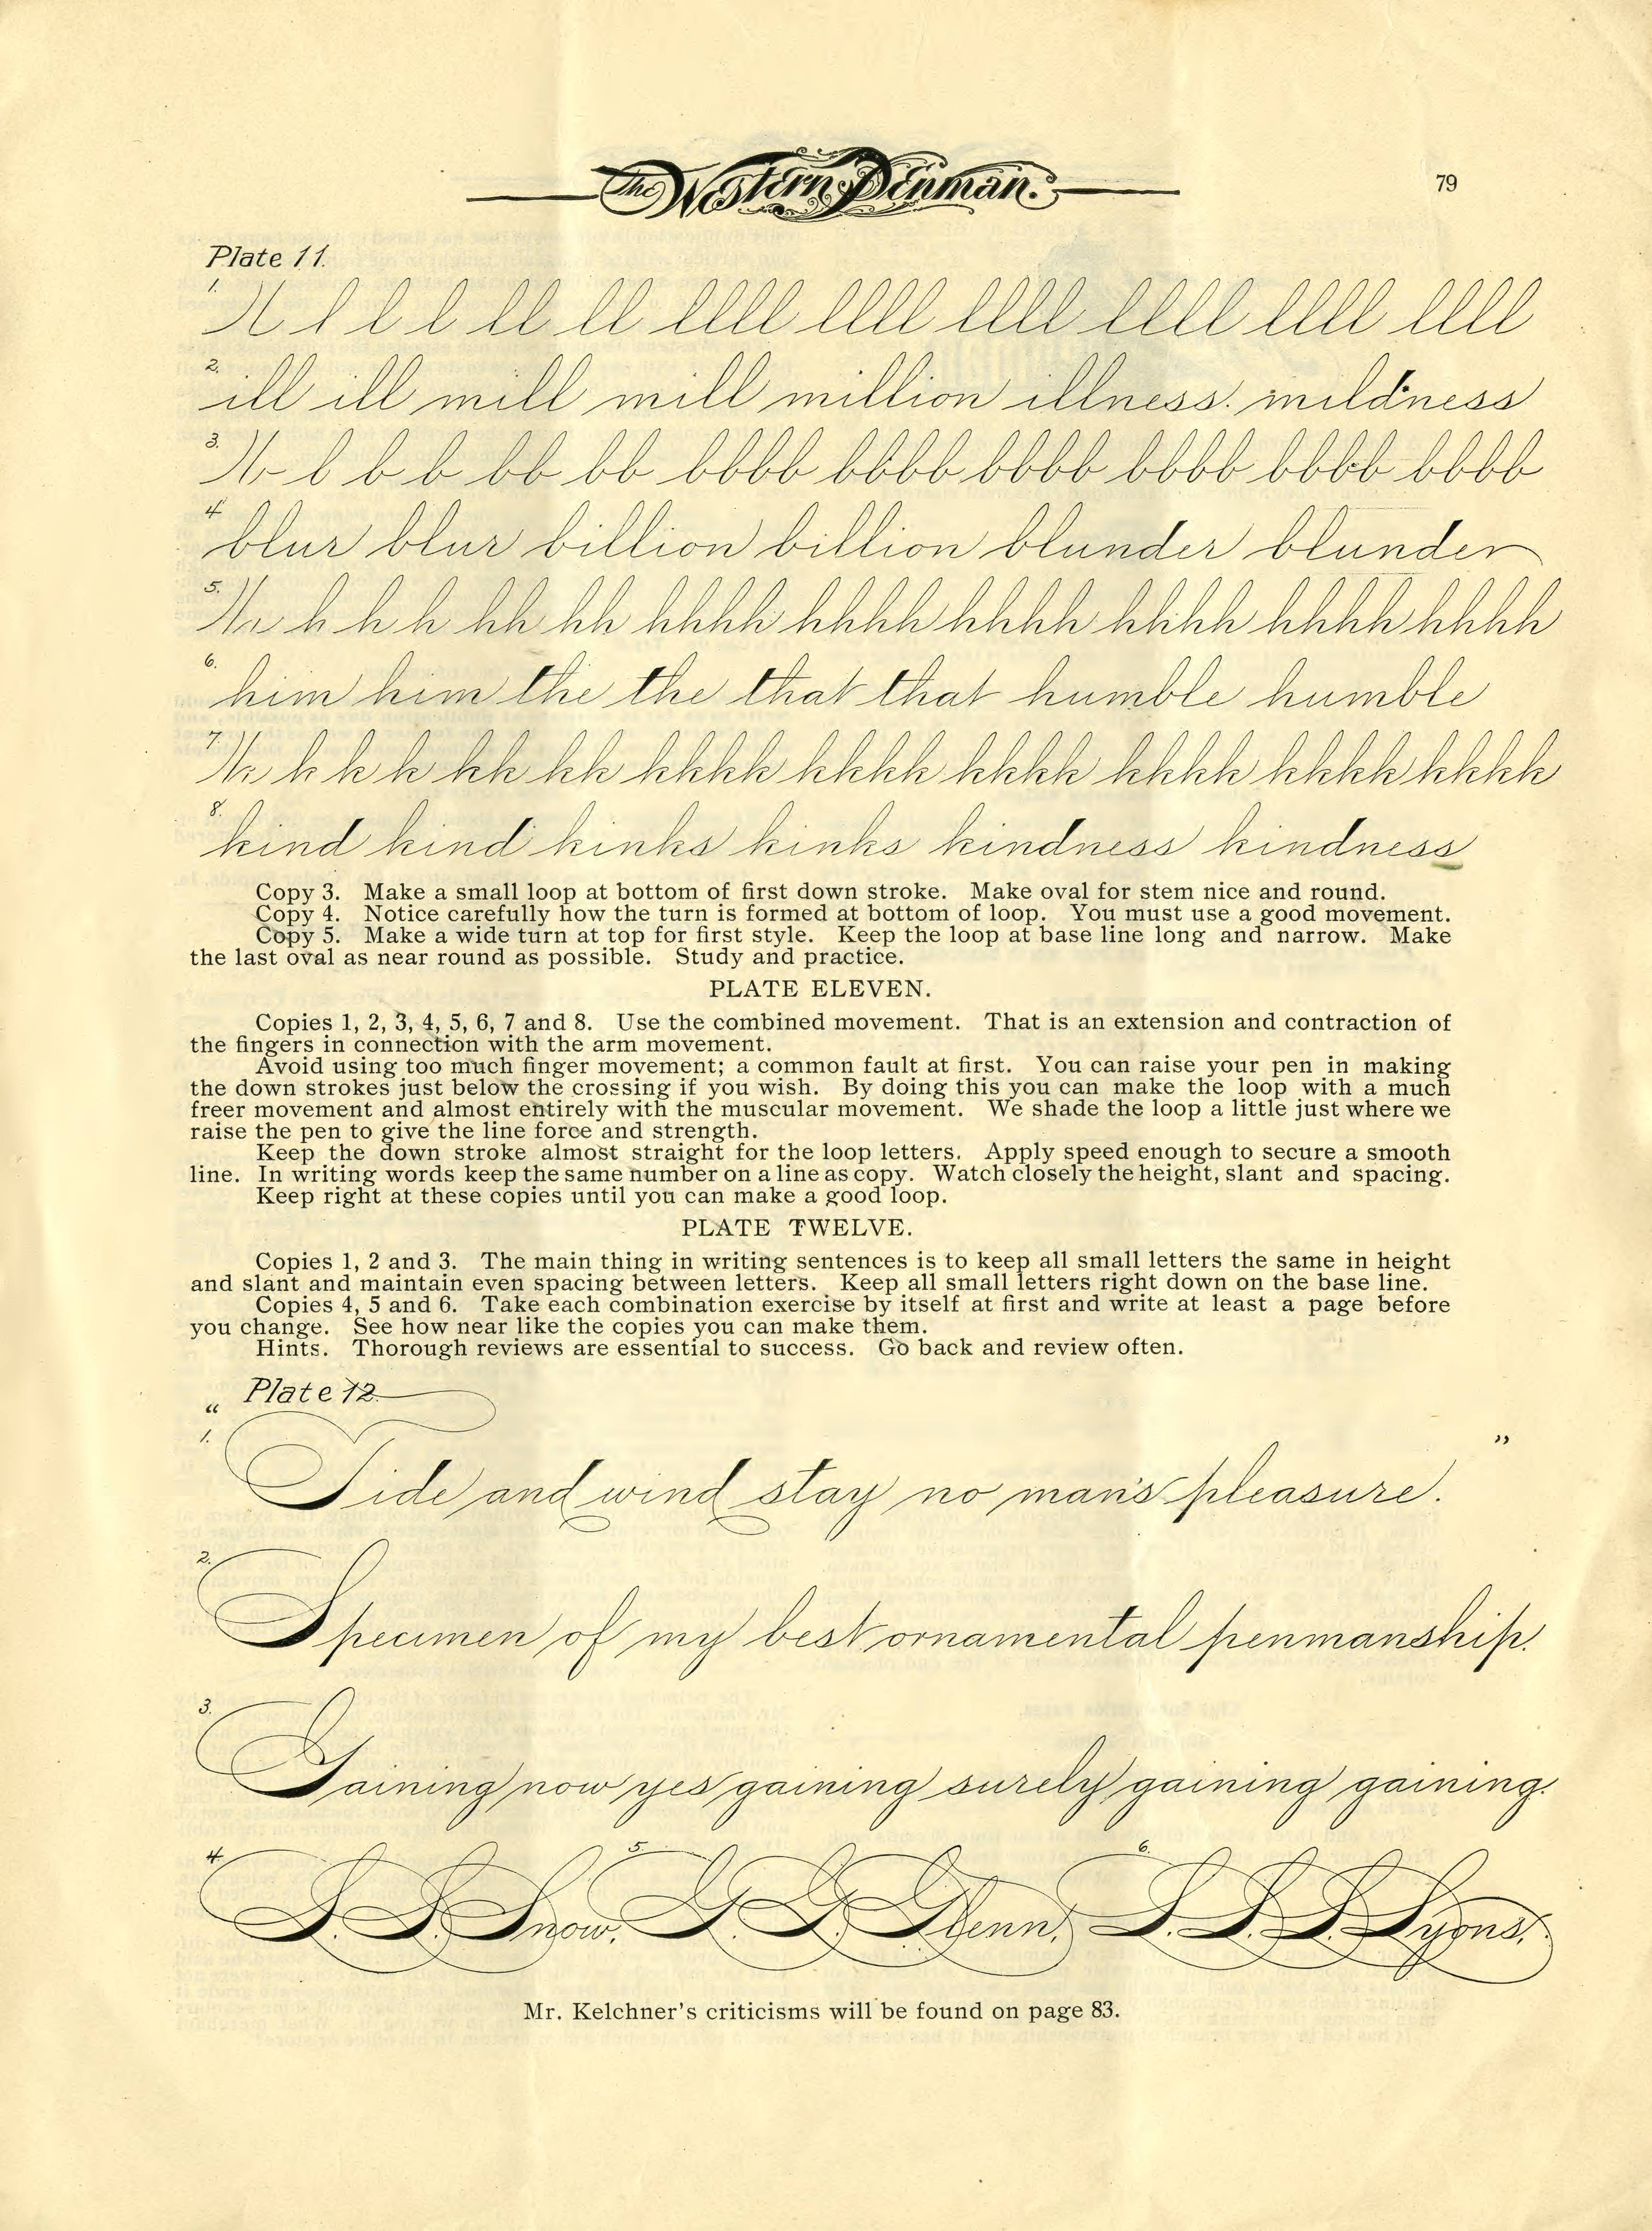 The Western Penman.
79
Plate 11.
1.
l l l l ll ll llll llll llll llll llll llll
2.
ill ill mill mill million illness. mildness
3.
b b b b bb bb bbbb bbbb bbbb bbbb bbbb bbbb
4
blur blur billion billion blunder blunder
5.
h h h h hh hh hhhh hhhh hhhh hhhh hhhh hhhh
6.
him him the the that that humble humble
7.
k k k k kk kk kkkk kkkk kkkk kkkk kkkk kkkk
8.
kind kind kinks kinks kindness kindness
Copy 3. Make a small loop at bottom of first down stroke. Make oval for stem nice and round.
Copy 4. Notice carefully how the turn is formed at bottom of loop. You must use a good movement.
Copy 5. Make a wide turn at top for first style. Keep the loop at base line long and narrow. Make
the last oval as near round as possible. Study and practice.
PLATE ELEVEN.
Copies 1, 2, 3, 4, 5, 6, 7 and 8. Use the combined movement. That is an extension and contraction of
the fingers in connection with the arm movement.
Avoid using too much finger movement; a common fault at first. You can raise your pen in making
the down strokes just below the crossing if you wish. By doing this you can make the loop with a much
freer movement and almost entirely with the muscular movement. We shade the loop a little just where we
raise the pen to give the line force and strength.
Keep the down stroke almost straight for the loop letters. Apply speed enough to secure a smooth
line. In writing words keep the same number on a line as copy. Watch closely the height, slant and spacing.
Keep right at these copies until you can make a good loop.
PLATE TWELVE.
Copies 1, 2 and 3. The main thing in writing sentences is to keep all small letters the same in height
and slant and maintain even spacing between letters. Keep all small letters right down on the base line.
Copies 4, 5 and 6. Take each combination exercise by itself at first and write at least a page before
you change. See how near like the copies you can make them.
Hints. Thorough reviews are essential to success. Go back and review often.
Plate 12.
1.
"Tide and wind stay no man's pleasure."
2.
Specimen of my best ornamental penmanship.
3.
Gaining now yes gaining surely gaining gaining.
4. S. S. Snow. 5. G. G. Glenn. 6. S. S. S. Syons.
Mr. Kelchner's criticisms will be found on page 83.